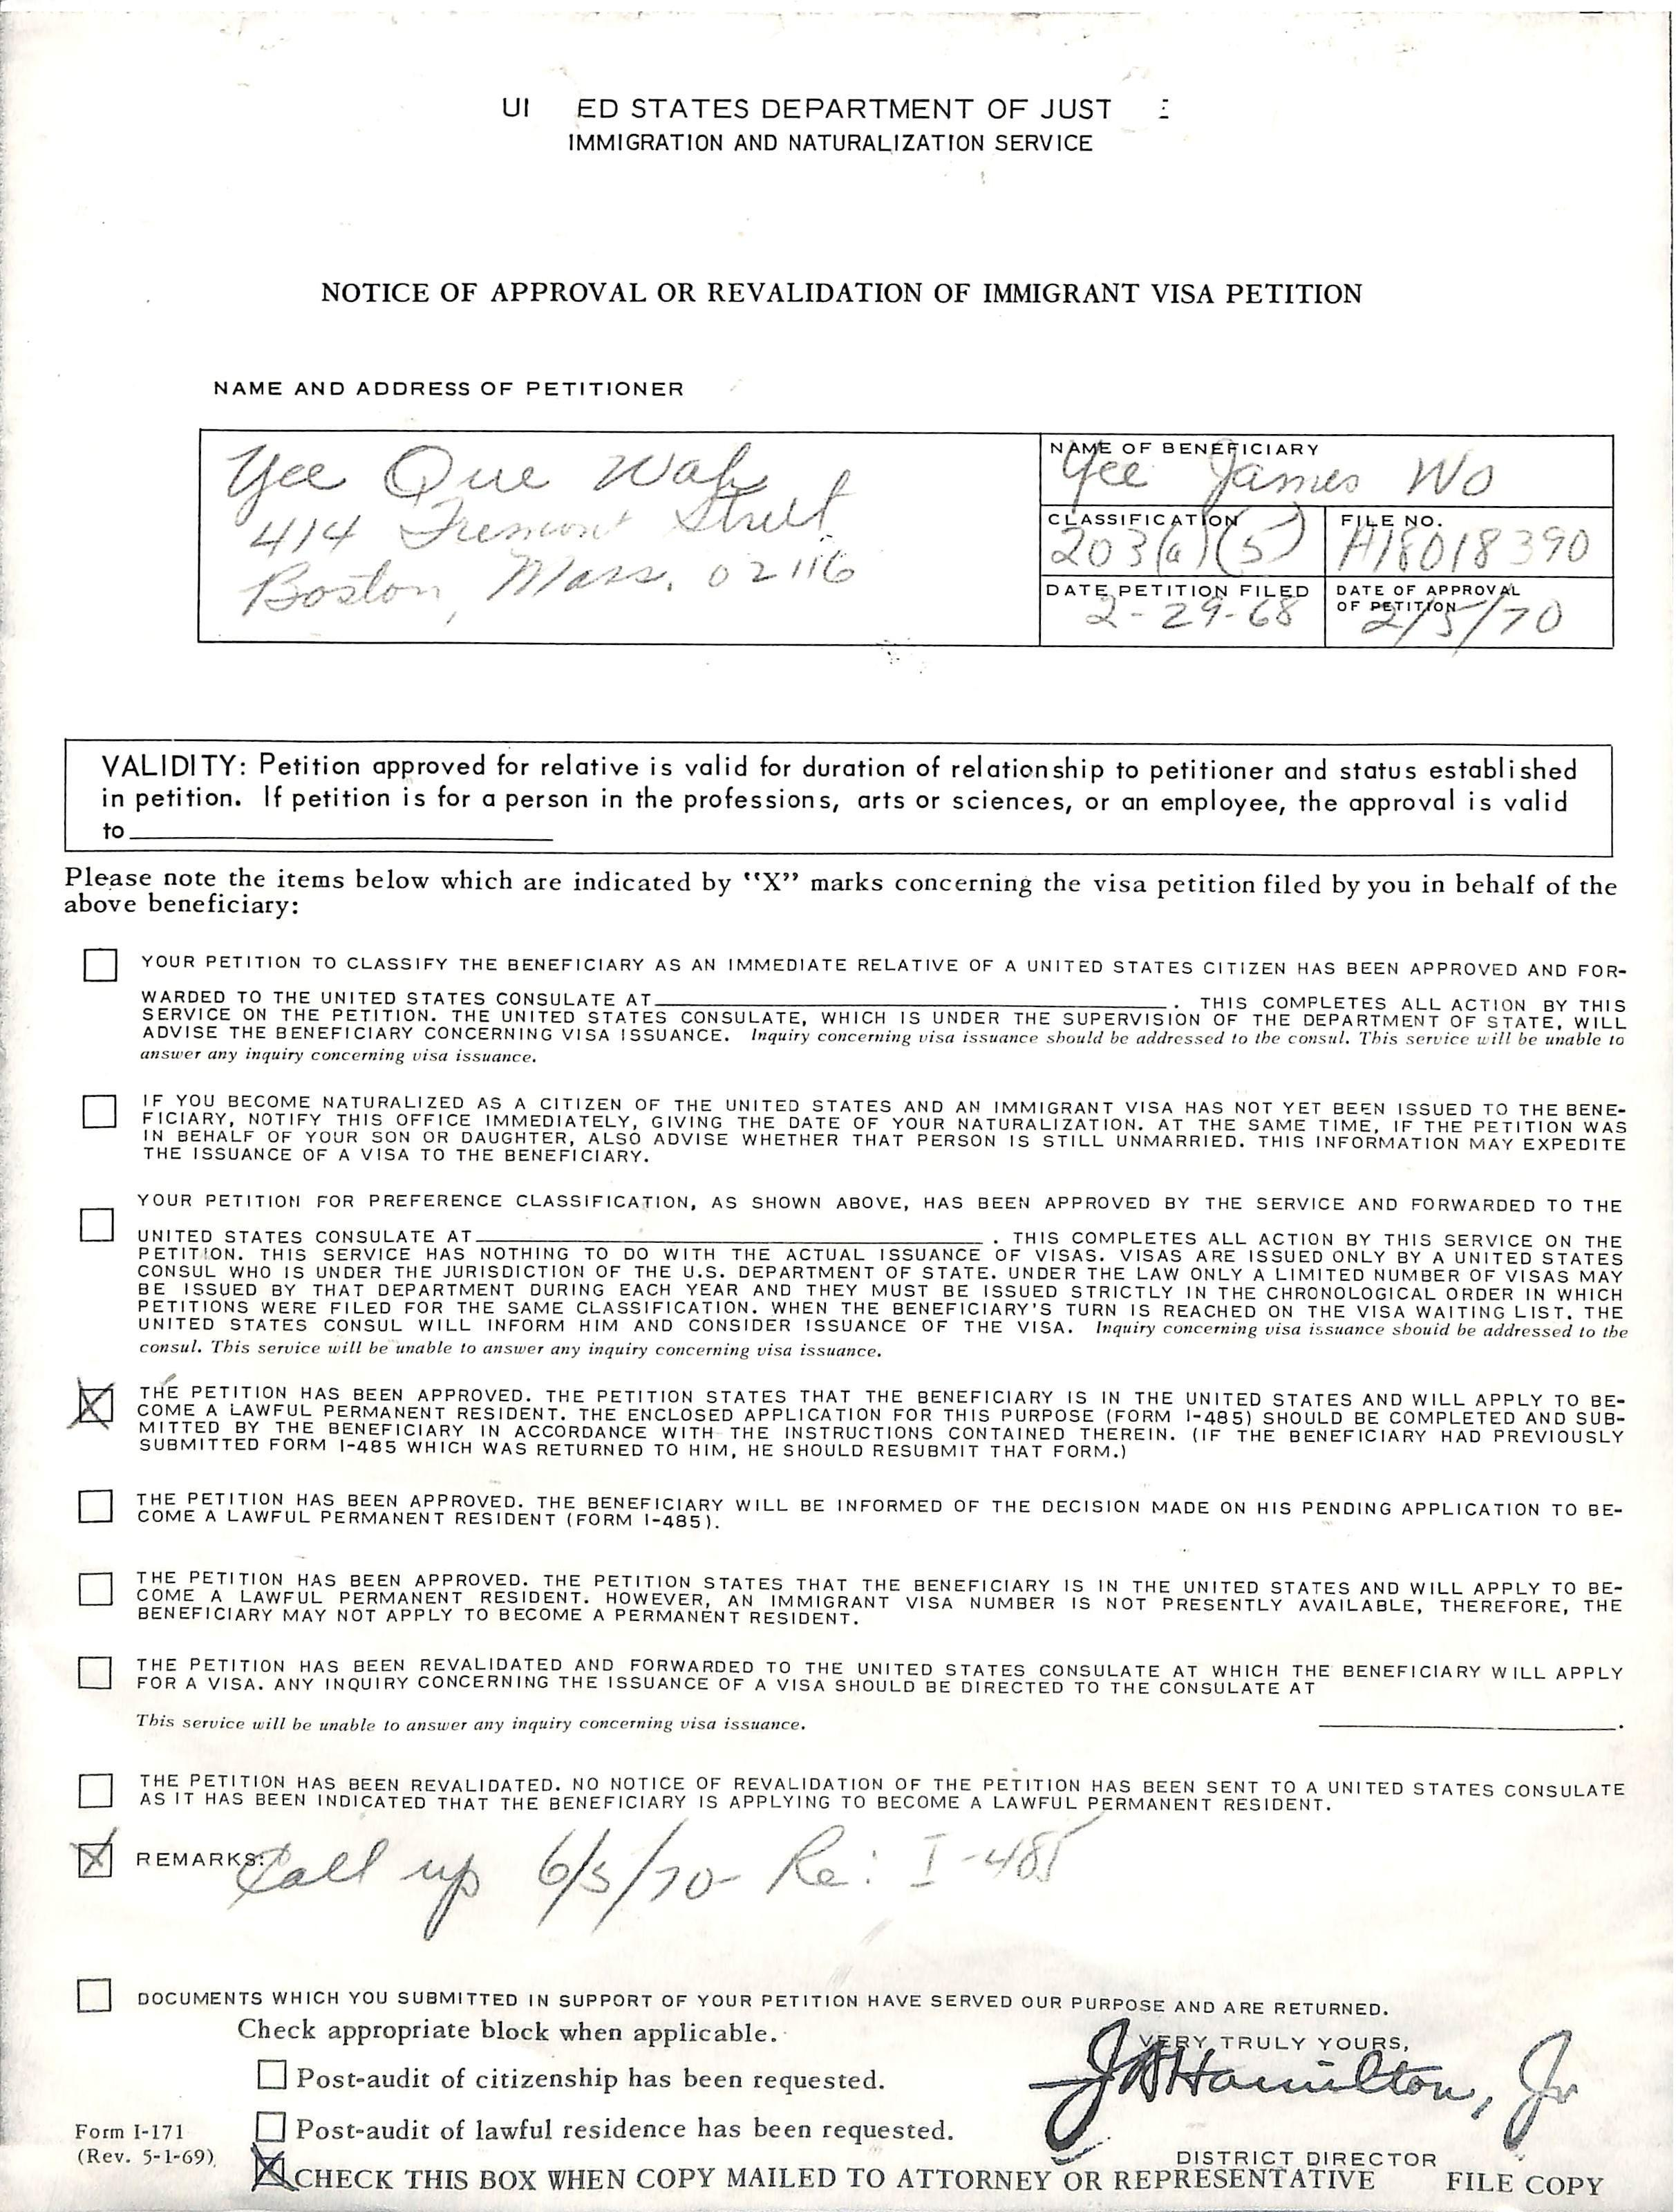 UI ED STATES DEPARTMENT OF JUST
IMMIGRATION AND NATURALIZATION SERVICE
NOTICE OF APPROVAL OR REVALIDATION OF IMMIGRANT VISA PETITION
NAME AND ADDRESS OF PETITIONER
Yee Que Wah
414 Tremont Street
Boston, Mass. 02116
NAME OF BENEFICIARY
Yee James Wo
CLASSIFICATION
203(a)(5)
FILE NO.
A18018390
DATE PETITION FILED
2-29-68
DATE OF APPROVAL
OF PETITION
2/5/70
VALIDITY: Petition approved for relative is valid for duration of relationship to petitioner and status established
in petition. If petition is for a person in the professions, arts or sciences, or an employee, the approval is valid
to
Please note the items below which are indicated by "X" marks concerning the visa petition filed by you in behalf of the
above beneficiary:
YOUR PETITION TO CLASSIFY THE BENEFICIARY AS AN IMMEDIATE RELATIVE OF A UNITED STATES CITIZEN HAS BEEN APPROVED AND FOR-
WARDED TO THE UNITED STATES CONSULATE AT . THIS COMPLETES ALL ACTION BY THIS
SERVICE ON THE PETITION. THE UNITED STATES CONSULATE, WHICH IS UNDER THE SUPERVISION OF THE DEPARTMENT OF STATE, WILL
ADVISE THE BENEFICIARY CONCERNING VISA ISSUANCE. Inquiry concerning visa issuance should be addressed to the consul. This service will be unable to
answer any inquiry concerning visa issuance.
IF YOU BECOME NATURALIZED AS A CITIZEN OF THE UNITED STATES AND AN IMMIGRANT VISA HAS NOT YET BEEN ISSUED TO THE BENE-
FICIARY, NOTIFY THIS OFFICE IMMEDIATELY, GIVING THE DATE OF YOUR NATURALIZATION. AT THE SAME TIME, IF THE PETITION WAS
IN BEHALF OF YOUR SON OR DAUGHTER, ALSO ADVISE WHETHER THAT PERSON IS STILL UNMARRIED. THIS INFORMATION MAY EXPEDITE
THE ISSUANCE OF A VISA TO THE BENEFICIARY.
YOUR PETITION FOR PREFERENCE CLASSIFICATION, AS SHOWN ABOVE, HAS BEEN APPROVED BY THE SERVICE AND FORWARDED TO THE
UNITED STATES CONSULATE AT . THIS COMPLETES ALL ACTION BY THIS SERVICE ON THE
PETITION. THIS SERVICE HAS NOTHING TO DO WITH THE ACTUAL ISSUANCE OF VISAS. VISAS ARE ISSUED ONLY BY A UNITED STATES
CONSUL WHO IS UNDER THE JURISDICTION OF THE U.S. DEPARTMENT OF STATE. UNDER THE LAW ONLY A LIMITED NUMBER OF VISAS MAY
BE ISSUED BY THAT DEPARTMENT DURING EACH YEAR AND THEY MUST BE ISSUED STRICTLY IN THE CHRONOLOGICAL ORDER IN WHICH
PETITIONS WERE FILED FOR THE SAME CLASSIFICATION. WHEN THE BENEFICIARY'S TURN IS REACHED ON THE VISA WAITING LIST, THE
UNITED STATES CONSUL WILL INFORM HIM AND CONSIDER ISSUANCE OF THE VISA. Inquiry concerning visa issuance should be addressed to the
consul. This service will be unable to answer any inquiry concerning visa issuance.
THE PETITION HAS BEEN APPROVED. THE PETITION STATES THAT THE BENEFICIARY IS IN THE UNITED STATES AND WILL APPLY TO BE-
COME A LAWFUL PERMANENT RESIDENT. THE ENCLOSED APPLICATION FOR THIS PURPOSE (FORM I-485) SHOULD BE COMPLETED AND SUB-
MITTED BY THE BENEFICIARY IN ACCORDANCE WITH THE INSTRUCTIONS CONTAINED THEREIN. (IF THE BENEFICIARY HAD PREVIOUSLY
SUBMITTED FORM I-485 WHICH WAS RETURNED TO HIM, HE SHOULD RESUBMIT THAT FORM.)
THE PETITION HAS BEEN APPROVED. THE BENEFICIARY WILL BE INFORMED OF THE DECISION MADE ON HIS PENDING APPLICATION TO BE-
COME A LAWFUL PERMANENT RESIDENT (FORM I-485).
THE PETITION HAS BEEN APPROVED. THE PETITION STATES THAT THE BENEFICIARY IS IN THE UNITED STATES AND WILL APPLY TO BE-
COME A LAWFUL PERMANENT RESIDENT. HOWEVER, AN IMMIGRANT VISA NUMBER IS NOT PRESENTLY AVAILABLE, THEREFORE, THE
BENEFICIARY MAY NOT APPLY TO BECOME A PERMANENT RESIDENT.
THE PETITION HAS BEEN REVALIDATED AND FORWARDED TO THE UNITED STATES CONSULATE AT WHICH THE BENEFICIARY WILL APPLY
FOR A VISA. ANY INQUIRY CONCERNING THE ISSUANCE OF A VISA SHOULD BE DIRECTED TO THE CONSULATE AT
This service will be unable to answer any inquiry concerning visa issuance. .
THE PETITION HAS BEEN REVALIDATED. NO NOTICE OF REVALIDATION OF THE PETITION HAS BEEN SENT TO A UNITED STATES CONSULATE
AS IT HAS BEEN INDICATED THAT THE BENEFICIARY IS APPLYING TO BECOME A LAWFUL PERMANENT RESIDENT.
REMARKS: Call up 6/5/70- Re: I-485
DOCUMENTS WHICH YOU SUBMITTED IN SUPPORT OF YOUR PETITION HAVE SERVED OUR PURPOSE AND ARE RETURNED.
Check appropriate block when applicable.
VERY TRULY YOURS,
Post-audit of citizenship has been requested.
J A Hamilton, Jr
Post-audit of lawful residence has been requested.
Form I-171
(Rev. 5-1-69)
DISTRICT DIRECTOR
CHECK THIS BOX WHEN COPY MAILED TO ATTORNEY OR REPRESENTATIVE FILE COPY